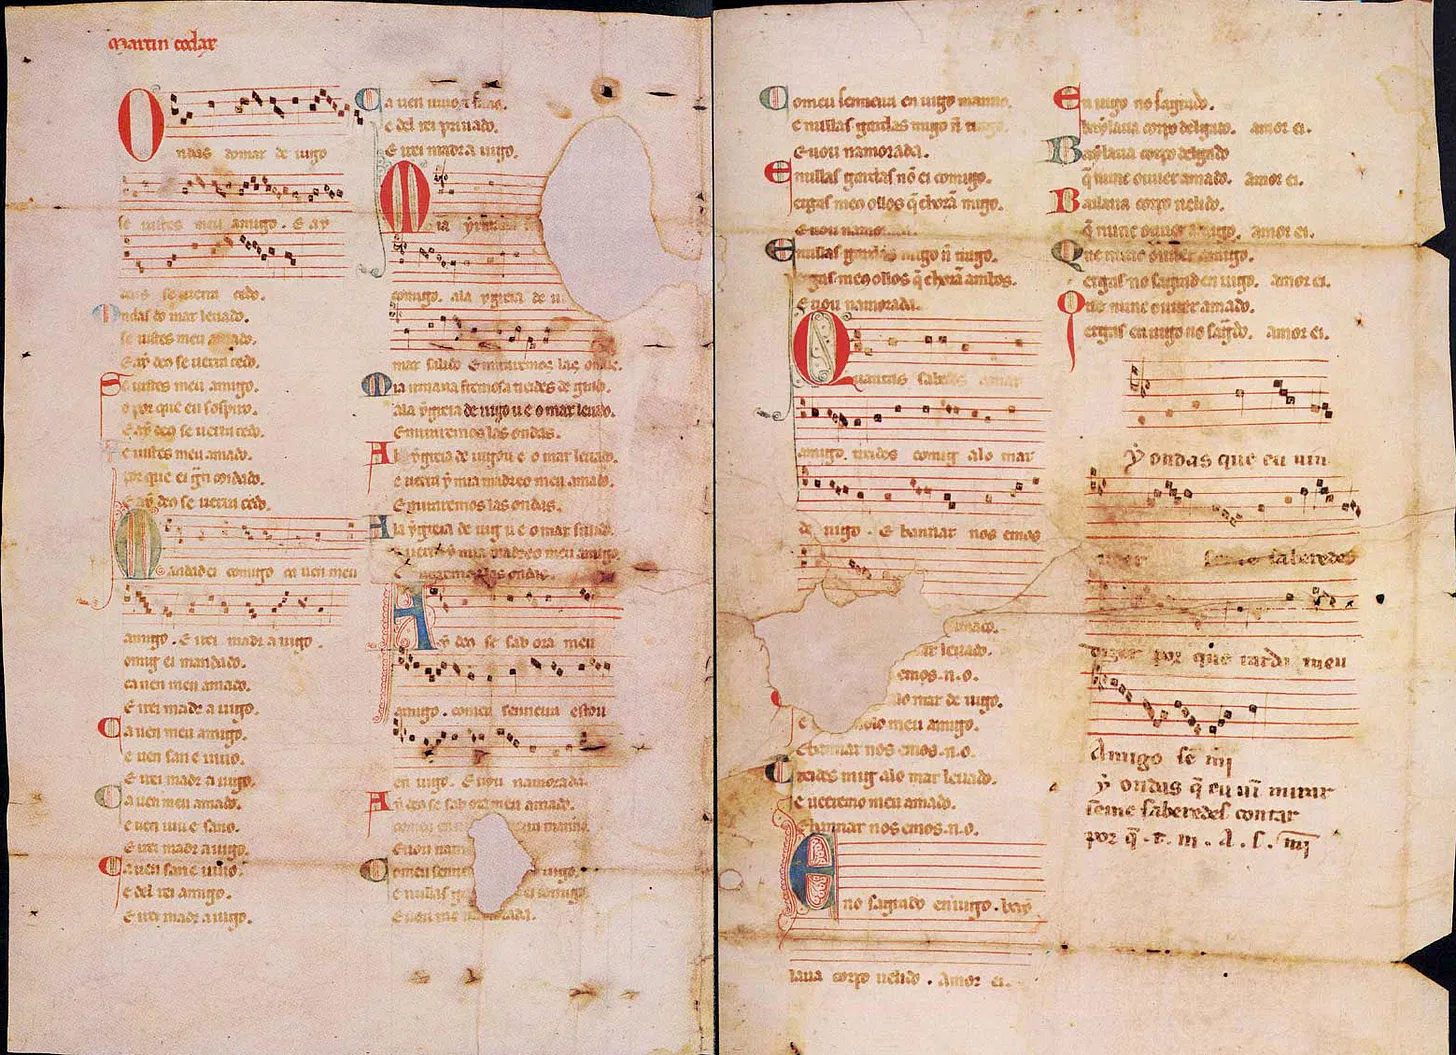 martin codax
Ondas do mar de vigo
se vistes meu amigo. E ay
deus se verra cedo.
Ondas do mar leuado.
se vistes meu amado.
E ay deo se uerra cedo.
Se uistes meu amigo.
o por que eu sospiro.
E ay deo se uerra cedo.
Se uistes meu amado.
por que ei gñ coidado.
E ay deo se uerra cedo.
Mandadei comigo ca uen meu
amigo. E irei madr a uigo.
Comig ei mandado.
ca uen meu amado.
E irei madr a uigo.
Ca uen meu amigo.
e uen san e uiuo.
E irei madr a uigo.
Ca uen meu amado.
e uen uiu e sano.
E irei madr a uigo.
Ca uen san e uiuo.
e del rei amigo.
E irei madr a uigo.
Ca uen uiuo e sano.
e del rei priuado.
E irei madr a uigo.
Mia yrmana
comigo. ala ygreia de u
mar salido E miraremos las ondas.
Mia irmana fremosa treides de grado.
ala ygreia de uigo u e o mar leuado.
E miraremos las ondas.
A la ygreia de uigo u e o mar leuado.
e uerra y mia madre o meu amado.
E miraremos las ondas.
A la ygreia de uig u e o mar salido.
e uerra y mia madre o meu amigo.
E miraremos las ondas.
Ay deo se sab ora meu
amigo. comeu senneira estou
en uigo. E uou namorada.
Ay deo se sab ora meu amado.
comeu en uigo manno.
E uou nam
Comeu senn uigo.
e nullas g ei comigo.
E uou na orada.
Comeu senneira en uigo manno.
e nullas gardas migo ñ trago.
E uou namorada.
E nullas gardas nõ ei comigo.
ergas meos ollos q̃ chorã migo.
E uou namo
E nullas gardas migo ñ trago.
ergas meos ollos q̃ chorã ambos.
E uou namorada.
Quantas sabedes amar
amigo. treides comig alo mar
de uigo. E bannar nos emos
amado.
ar leuado.
emos.n.o.
alo mar de uigo.
e o meu amigo.
E bannar nos emos.n.o.
Treides mig alo mar leuado.
e ueeremo meu amado.
E bannar nos emos.n.o.
Eno sagrado en uigo. bay
laua corpo uelido. Amor ei.
En uigo no sagrado.
baylaua corpo delgado. amor ei.
Baylaua corpo delgado
q̃ nunc ouuer amado. amor ei.
Bailaua corpo uelido.
q̃ nunc ouuer amigo. amor ei.
Que nunc ouuer amigo.
ergas no sagrad en uigo. amor ei.
Que nunc ouuer amado.
ergas en uigo no sagrdo. amor ei.
Ay ondas que eu uin
ueer se me saberedes
dizer por que tarda meu
Amigo sẽ mĩ
Ay ondas q̃ eu uĩ mirar
se me saberedes contar
por q̃ . t. m . A . s. mĩ